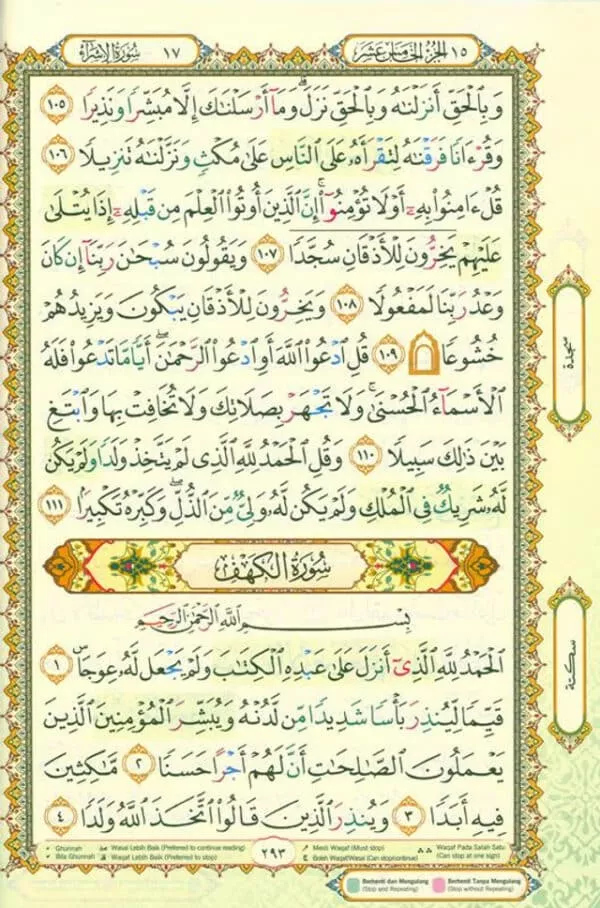 ١٧ سُورَةُ الإِسْرَاءِ
الجُزْءُ الخَامِسَ عَشَرَ ١٥
وَبِٱلْحَقِّ أَنزَلْنَٰهُ وَبِٱلْحَقِّ نَزَلَ ۗ وَمَآ أَرْسَلْنَٰكَ إِلَّا مُبَشِّرًا وَنَذِيرًا ١٠٥
وَقُرْءَانًا فَرَقْنَٰهُ لِتَقْرَأَهُۥ عَلَى ٱلنَّاسِ عَلَىٰ مُكْثٍ وَنَزَّلْنَٰهُ تَنزِيلًا ١٠٦
قُلْ ءَامِنُوا۟ بِهِۦٓ أَوْ لَا تُؤْمِنُوٓا۟ ۚ إِنَّ ٱلَّذِينَ أُوتُوا۟ ٱلْعِلْمَ مِن قَبْلِهِۦٓ إِذَا يُتْلَىٰ
عَلَيْهِمْ يَخِرُّونَ لِلْأَذْقَانِ سُجَّدًا ١٠٧ وَيَقُولُونَ سُبْحَٰنَ رَبِّنَآ إِن كَانَ
وَعْدُ رَبِّنَا لَمَفْعُولًا ١٠٨ وَيَخِرُّونَ لِلْأَذْقَانِ يَبْكُونَ وَيَزِيدُهُمْ
خُشُوعًا ١٠٩ قُلِ ٱدْعُوا۟ ٱللَّهَ أَوِ ٱدْعُوا۟ ٱلرَّحْمَٰنَ ۖ أَيًّا مَّا تَدْعُوا۟ فَلَهُ
ٱلْأَسْمَآءُ ٱلْحُسْنَىٰ ۚ وَلَا تَجْهَرْ بِصَلَاتِكَ وَلَا تُخَافِتْ بِهَا وَٱبْتَغِ
بَيْنَ ذَٰلِكَ سَبِيلًا ١١٠ وَقُلِ ٱلْحَمْدُ لِلَّهِ ٱلَّذِى لَمْ يَتَّخِذْ وَلَدًا وَلَمْ يَكُن
لَّهُۥ شَرِيكٌ فِى ٱلْمُلْكِ وَلَمْ يَكُن لَّهُۥ وَلِىٌّ مِّنَ ٱلذُّلِّ ۖ وَكَبِّرْهُ تَكْبِيرًا ١١١
سُورَةُ الكَهْفِ
بِسْمِ ٱللَّهِ ٱلرَّحْمَٰنِ ٱلرَّحِيمِ
ٱلْحَمْدُ لِلَّهِ ٱلَّذِىٓ أَنزَلَ عَلَىٰ عَبْدِهِ ٱلْكِتَٰبَ وَلَمْ يَجْعَل لَّهُۥ عِوَجَا ۜ ١
قَيِّمًا لِّيُنذِرَ بَأْسًا شَدِيدًا مِّن لَّدُنْهُ وَيُبَشِّرَ ٱلْمُؤْمِنِينَ ٱلَّذِينَ
يَعْمَلُونَ ٱلصَّٰلِحَٰتِ أَنَّ لَهُمْ أَجْرًا حَسَنًا ٢ مَّٰكِثِينَ
فِيهِ أَبَدًا ٣ وَيُنذِرَ ٱلَّذِينَ قَالُوا۟ ٱتَّخَذَ ٱللَّهُ وَلَدًا ٤
سجدة
سكتة
٢٩٣
Ghunnah
Bila Ghunnah
Wasal Lebih Baik (Preferred to continue reading)
Waqaf Lebih Baik (Preferred to stop)
Mesti Waqaf (Must stop)
Boleh Waqaf/Wasal (Can stop/continue)
Waqaf Pada Salah Satu
(Can stop at one sign)
Berhenti dan Mengulang
(Stop and Repeating)
Berhenti Tanpa Mengulang
(Stop without Repeating)